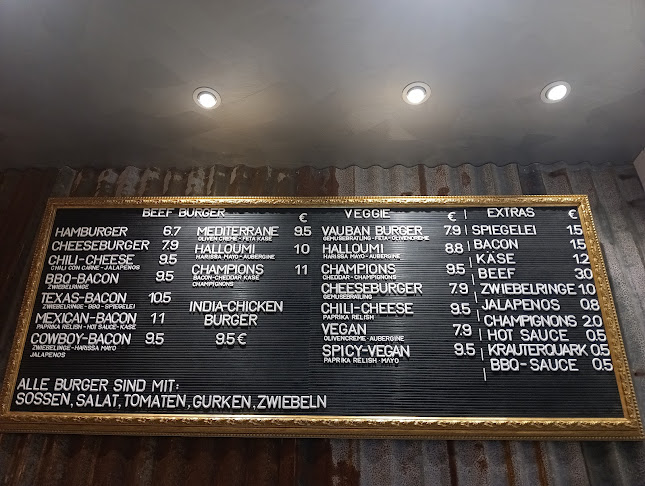 BEEF BURGER €
HAMBURGER 6.7
CHEESEBURGER 7.9
CHILI-CHEESE 9.5
CHILI CON CARNE - JALAPENOS
BBQ-BACON 9.5
ZWIEBELRINGE
TEXAS-BACON 10.5
ZWIEBELRINGE - BBQ - SPIEGELEI
MEXICAN-BACON 11
PAPRIKA RELISH - HOT SAUCE - KÄSE
COWBOY-BACON 9.5
ZWIEBELRINGE - HARISSA MAYO
JALAPENOS
MEDITERRANE 9.5
OLIVEN CREME - FETA KÄSE
HALLOUMI 10
HARISSA MAYO - AUBERGINE
CHAMPIONS 11
BACON - CHEDDAR - KÄSE
CHAMPIGNONS
INDIA-CHICKEN
BURGER
9.5 €
VEGGIE €
VAUBAN BURGER 7.9
GEMÜSEBRATLING - FETA - OLIVENCREME
HALLOUMI 8.8
HARISSA MAYO - AUBERGINE
CHAMPIONS 9.5
CHEDDAR - CHAMPIGNONS
CHEESEBURGER 7.9
GEMÜSEBRATLING
CHILI-CHEESE 9.5
PAPRIKA RELISH
VEGAN 7.9
OLIVENCREME - AUBERGINE
SPICY-VEGAN 9.5
PAPRIKA RELISH - MAYO
EXTRAS €
SPIEGELEI 1.5
BACON 1.5
KÄSE 1.2
BEEF 3.0
ZWIEBELRINGE 1.0
JALAPENOS 0.8
CHAMPIGNONS 2.0
HOT SAUCE 0.5
KRÄUTERQUARK 0.5
BBQ-SAUCE 0.5
ALLE BURGER SIND MIT:
SOSSEN, SALAT, TOMATEN, GURKEN, ZWIEBELN